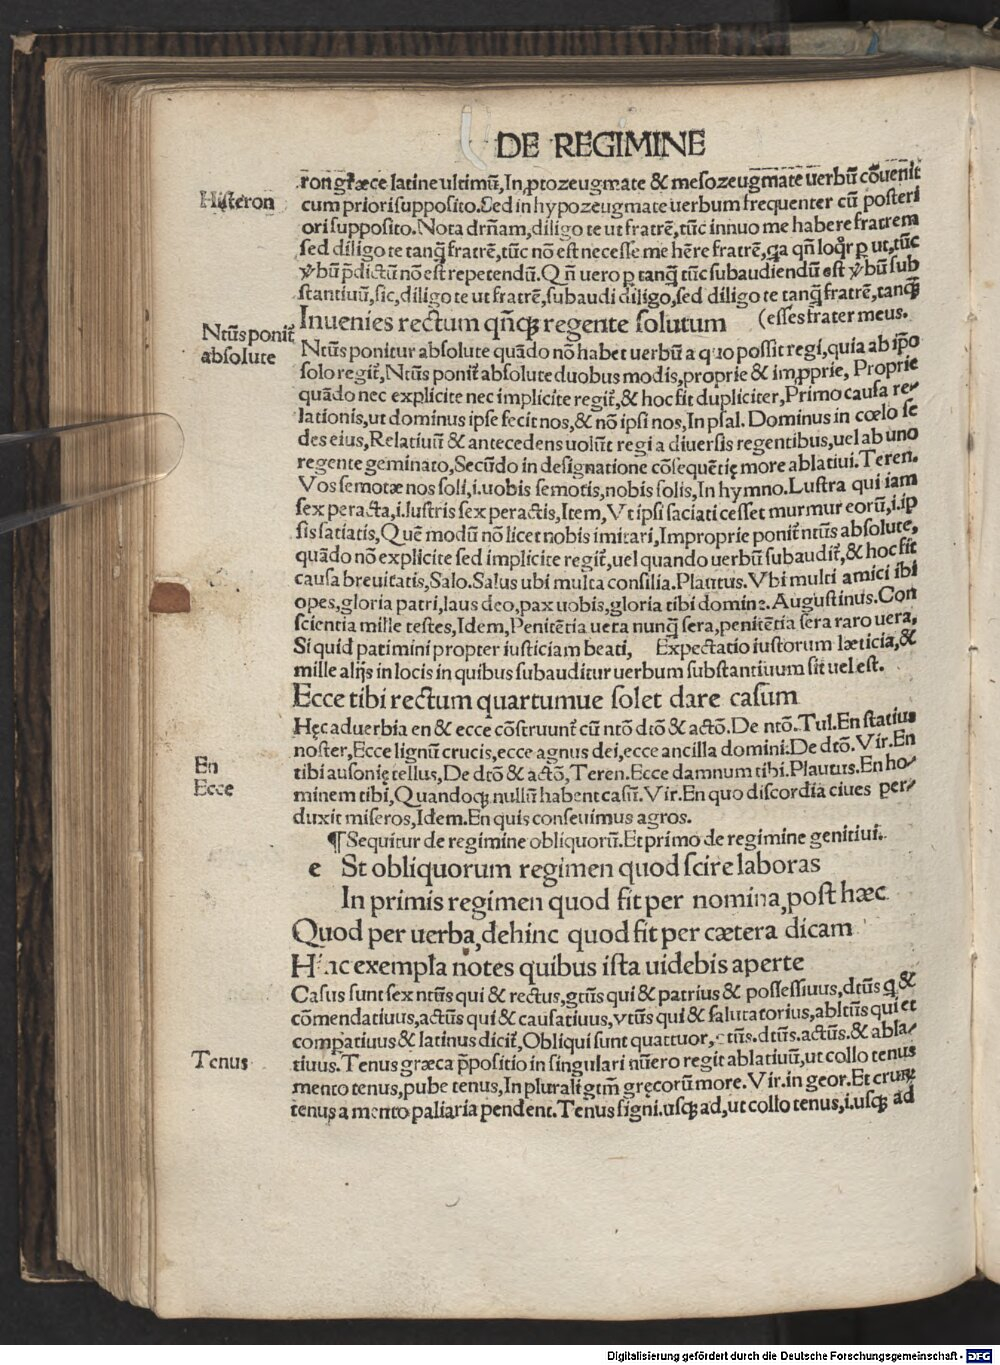 DE REGIMINE
ron græce latine ultimũ, In ꝓtozeugmate & mesozeugmate uerbũ cõuenit
Histeron
cum priori supposito. Sed in hypozeugmate uerbum frequenter cũ posteri
ori supposito. Nota drñam, diligo te ut fratrẽ, tũc innuo me habere fratrem
sed diligo te tanq̃ fratrẽ, tũc nõ est necesse me hẽre fratrẽ, qa qñ loqr̃ ꝑ ut, tũc
ꝟbũ p̃dictũ nõ est repetendũ. Qñ uero ꝑ tanq̃ tũc subaudiendũ est ꝟbũ sub
stantiuũ, sic, diligo te ut fratrẽ, subaudi diligo, sed diligo te tanq̃ fratrẽ, tanꝙ̃
Inuenies rectum qñꝙ regente solutum (esses frater meus.
Ntũs ponit̃
absolute
Ntũs ponitur absolute quãdo nõ habet uerbũ a quo possit regi, quia ab ip̃o
solo regit̃, Ntũs ponit̃ absolute duobus modis, proprie & imꝓprie, Proprie
quãdo nec explicite nec implicite regit̃, & hoc fit dupliciter, Primo causa re⸗
lationis, ut dominus ipse fecit nos, & nõ ipsi nos, In psal. Dominus in cœlo se
des eius, Relatiuũ & antecedens uolũt regi a diuersis regentibus, uel ab uno
regente geminato, Secũdo in designatione cõsequẽtię more ablatiui. Teren.
Vos semotæ nos soli, i. uobis semotis, nobis solis, In hymno. Lustra qui iam
sex peracta, i. lustris sex peractis, Item, Vt ipsi saciati cesset murmur eorũ, i. ip
sis satiatis, Quẽ modũ nõ licet nobis imitari, Improprie ponit̃ ntũs absolute,
quãdo nõ explicite sed implicite regit̃, uel quando uerbũ subaudit̃, & hoc fit
causa breuitatis, Salo. Salus ubi multa consilia. Plautus. Vbi multi amici ibi
opes, gloria patri, laus deo, pax uobis, gloria tibi domine. Augustinus. Con
scientia mille testes, Idem, Penitẽtia uera nunq̃ sera, penitẽtia sera raro uera,
Si quid patimini propter iusticiam beati, Expectatio iustorum læticia, &
mille alijs in locis in quibus subauditur uerbum substantiuum sit uel est.
Ecce tibi rectum quartumue solet dare casum
Hęc aduerbia en & ecce cõstruunt̃ cũ ntõ dtõ & actõ. De ntõ. Tul. En statius
noster, Ecce lignũ crucis, ecce agnus dei, ecce ancilla domini. De dtõ. Vir. En
En
Ecce
tibi ausonię tellus, De dtõ & actõ, Teren. Ecce damnum tibi. Plautus. En ho⸗
minem tibi, Quandoꝙ nullũ habent casũ. Vir. En quo discordia ciues per⸗
duxit miseros, Idem. En quis conseuimus agros.
¶ Sequitur de regimine obliquorũ. Et primo de regimine genitiui.
e St obliquorum regimen quod scire laboras
In primis regimen quod fit per nomina, post hæc
Quod per uerba, dehinc quod fit per cætera dicam
Hinc exempla notes quibus ista uidebis aperte
Casus sunt sex ntũs qui & rectus, gtũs qui & patrius & possessiuus, dtũs q &
cõmendatiuus, actũs qui & causatiuus, vtũs qui & salutatorius, abltũs qui et
compatiuus & latinus dicit̃, Obliqui sunt quattuor, gtũs. dtũs. actũs. & abla⸗
Tenus
tiuus. Tenus græca p̃positio in singulari nũero regit ablatiuũ, ut collo tenus
mento tenus, pube tenus, In plurali gtm̃ gręcorũ more. Vir. in geor. Et crurũ
tenus a mento paliaria pendent. Tenus signi. usꝙ ad, ut collo tenus, i. usꝙ ad
Digitalisierung gefördert durch die Deutsche Forschungsgemeinschaft - DFG